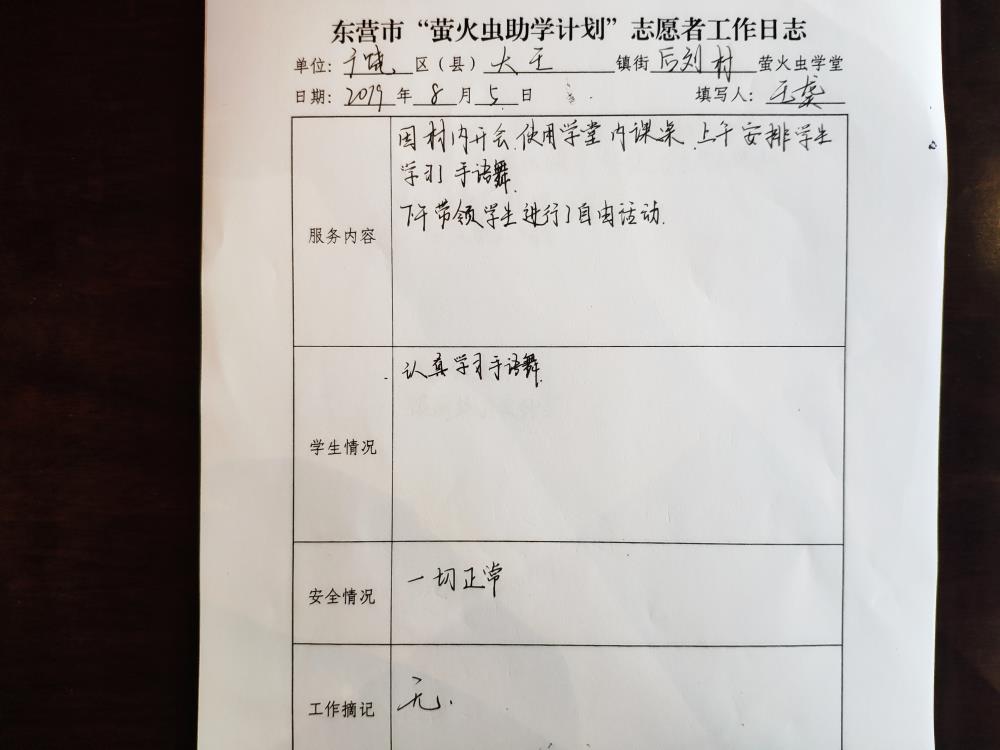 东营市“萤火虫助学计划”志愿者工作日志
单位：广饶区（县）大王镇街后刘村萤火虫学堂
日期：2019年8月5日 填写人：王龚
服务内容
因村内开会.使用学堂内课桌.上午安排学生
学习手语舞.
下午带领学生进行了自由活动.
学生情况
认真学习手语舞.
安全情况
一切正常
工作摘记
无.